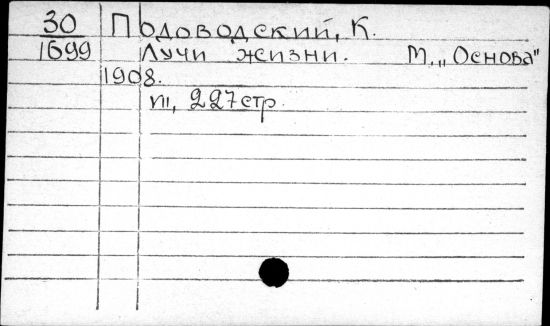 30 Подоводский, К.
1699 Лучи жизни. М., „Основа"
1908.
VIII, 227 стр.